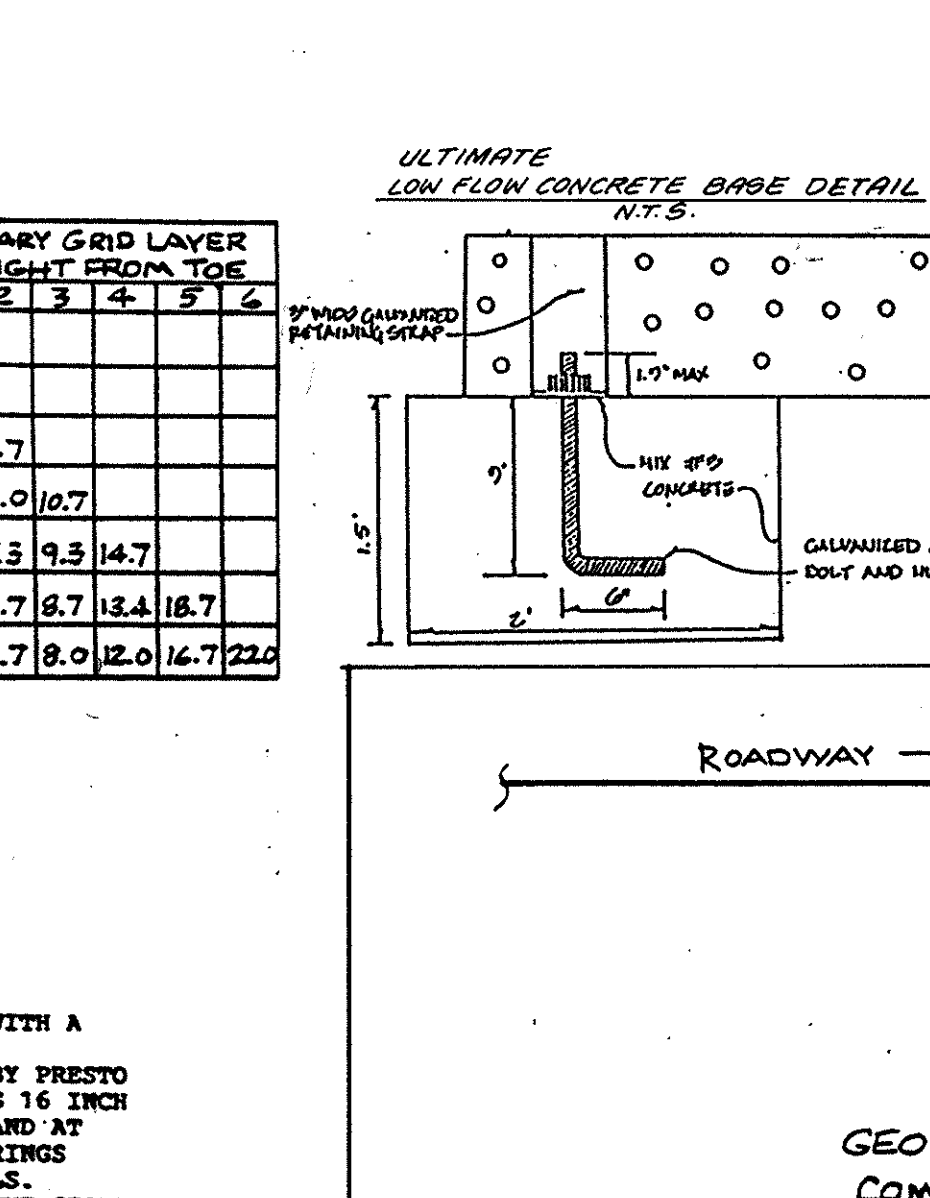 ULTIMATE
LOW FLOW CONCRETE BASE DETAIL
N.T.S.
ARY GRID LAYER
IGHT FROM TOE
2 3 4 5 6
.7
.0 10.7
.3 9.3 14.7
.7 8.7 13.4 18.7
.7 8.0 12.0 16.7 22.0
3" WIDE GALVANIZED
RETAINING STRAP
MAX
MIX
CONCRETE
1.5'
6"
2'
GALVANIZED
BOLT AND
ROADWAY
WITH A
BY PRESTO
S 16 INCH
AND AT
RINGS
LS.
GEO
COM